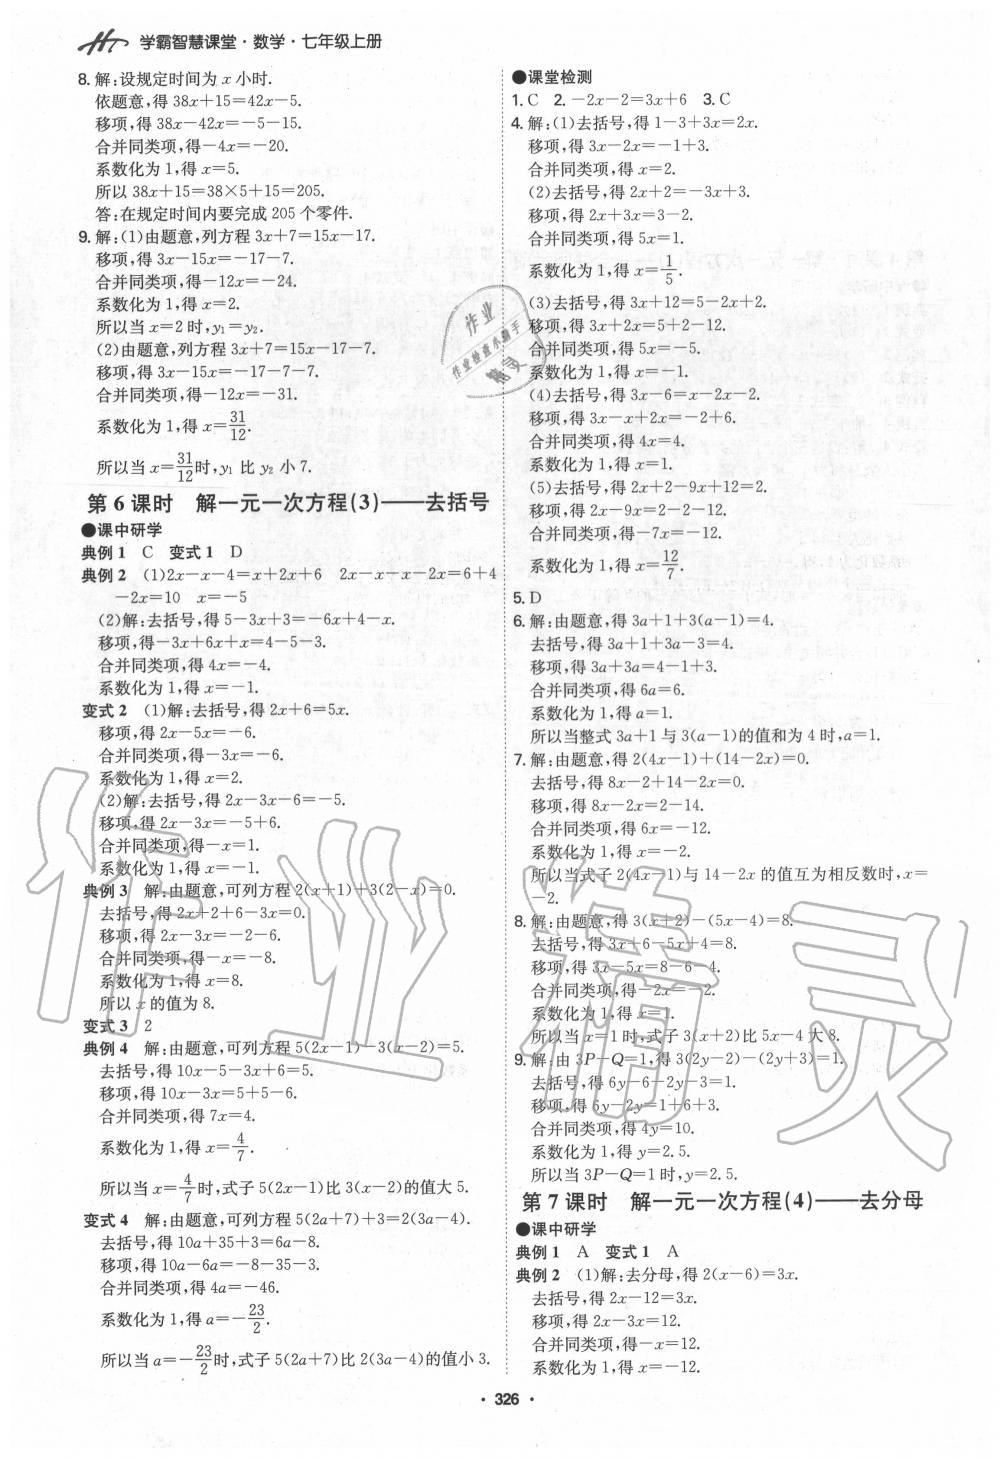 学霸智慧课堂·数学·七年级上册
8. 解:设规定时间为 x 小时.
依题意,得 38x+15=42x-5.
移项,得 38x-42x=-5-15.
合并同类项,得-4x=-20.
系数化为 1,得 x=5.
所以 38x+15=38×5+15=205.
答:在规定时间内要完成 205 个零件.
9. 解:(1)由题意,列方程 3x+7=15x-17.
移项,得 3x-15x=-17-7.
合并同类项,得-12x=-24.
系数化为 1,得 x=2.
所以当 x=2 时,y₁=y₂.
(2)由题意,列方程 3x+7=15x-17-7.
移项,得 3x-15x=-17-7-7.
合并同类项,得-12x=-31.
系数化为 1,得 x=31/12.
所以当 x=31/12时,y₁ 比 y₂ 小 7.
第 6 课时 解一元一次方程(3)——去括号
●课中研学
典例 1 C 变式 1 D
典例 2 (1)2x-x-4=x+2x+6 2x-x-x-2x=6+4
-2x=10 x=-5
(2)解:去括号,得 5-3x+3=-6x+4-x.
移项,得-3x+6x+x=4-5-3.
合并同类项,得 4x=-4.
系数化为 1,得 x=-1.
变式 2 (1)解:去括号,得 2x+6=5x.
移项,得 2x-5x=-6.
合并同类项,得-3x=-6.
系数化为 1,得 x=2.
(2)解:去括号,得 2x-3x-6=-5.
移项,得 2x-3x=-5+6.
合并同类项,得-x=1.
系数化为 1,得 x=-1.
典例 3 解:由题意,可列方程 2(x+1)+3(2-x)=0.
去括号,得 2x+2+6-3x=0.
移项,得 2x-3x=-2-6.
合并同类项,得-x=-8.
系数化为 1,得 x=8.
所以 x 的值为 8.
变式 3 2
典例 4 解:由题意,可列方程 5(2x-1)-3(x-2)=5.
去括号,得 10x-5-3x+6=5.
移项,得 10x-3x=5+5-6.
合并同类项,得 7x=4.
系数化为 1,得 x=4/7.
所以当 x=4/7时,式子 5(2x-1)比 3(x-2)的值大 5.
变式 4 解:由题意,可列方程 5(2a+7)+3=2(3a-4).
去括号,得 10a+35+3=6a-8.
移项,得 10a-6a=-8-35-3.
合并同类项,得 4a=-46.
系数化为 1,得 a=-23/2.
所以当 a=-23/2时,式子 5(2a+7)比 2(3a-4)的值小 3.
●课堂检测
1. C 2. -2x-2=3x+6 3. C
4. 解:(1)去括号,得 1-3+3x=2x.
移项,得 3x-2x=-1+3.
合并同类项,得 x=2.
(2)去括号,得 2x+2=-3x+3.
移项,得 2x+3x=3-2.
合并同类项,得 5x=1.
系数化为 1,得 x=1/5.
(3)去括号,得 3x+12=5-2x+2.
移项,得 3x+2x=5+2-12.
合并同类项,得 5x=-5.
系数化为 1,得 x=-1.
(4)去括号,得 3x-6=x-2x-2.
移项,得 3x-x+2x=-2+6.
合并同类项,得 4x=4.
系数化为 1,得 x=1.
(5)去括号,得 2x+2-9x+12=2.
移项,得 2x-9x=2-2-12.
合并同类项,得-7x=-12.
系数化为 1,得 x=12/7.
5. D
6. 解:由题意,得 3a+1+3(a-1)=4.
去括号,得 3a+1+3a-3=4.
移项,得 3a+3a=4-1+3.
合并同类项,得 6a=6.
系数化为 1,得 a=1.
所以当整式 3a+1 与 3(a-1)的值和为 4 时,a=1.
7. 解:由题意,得 2(4x-1)+(14-2x)=0.
去括号,得 8x-2+14-2x=0.
移项,得 8x-2x=2-14.
合并同类项,得 6x=-12.
系数化为 1,得 x=-2.
所以当式子 2(4x-1)与 14-2x 的值互为相反数时,x=
-2.
8. 解:由题意,得 3(x+2)-(5x-4)=8.
去括号,得 3x+6-5x+4=8.
移项,得 3x-5x=8-6-4.
合并同类项,得-2x=-2.
系数化为 1,得 x=1.
所以当 x=1 时,式子 3(x+2)比 5x-4 大 8.
9. 解:由 3P-Q=1,得 3(2y-2)-(2y+3)=1.
去括号,得 6y-6-2y-3=1.
移项,得 6y-2y=1+6+3.
合并同类项,得 4y=10.
系数化为 1,得 y=2.5.
所以当 3P-Q=1时,y=2.5.
第 7 课时 解一元一次方程(4)——去分母
●课中研学
典例 1 A 变式 1 A
典例 2 (1)解:去分母,得 2(x-6)=3x.
去括号,得 2x-12=3x.
移项,得 2x-3x=12.
合并同类项,得-x=12.
系数化为 1,得 x=-12.
· 326 ·
作业
作业检查小助手
精灵
作业精灵